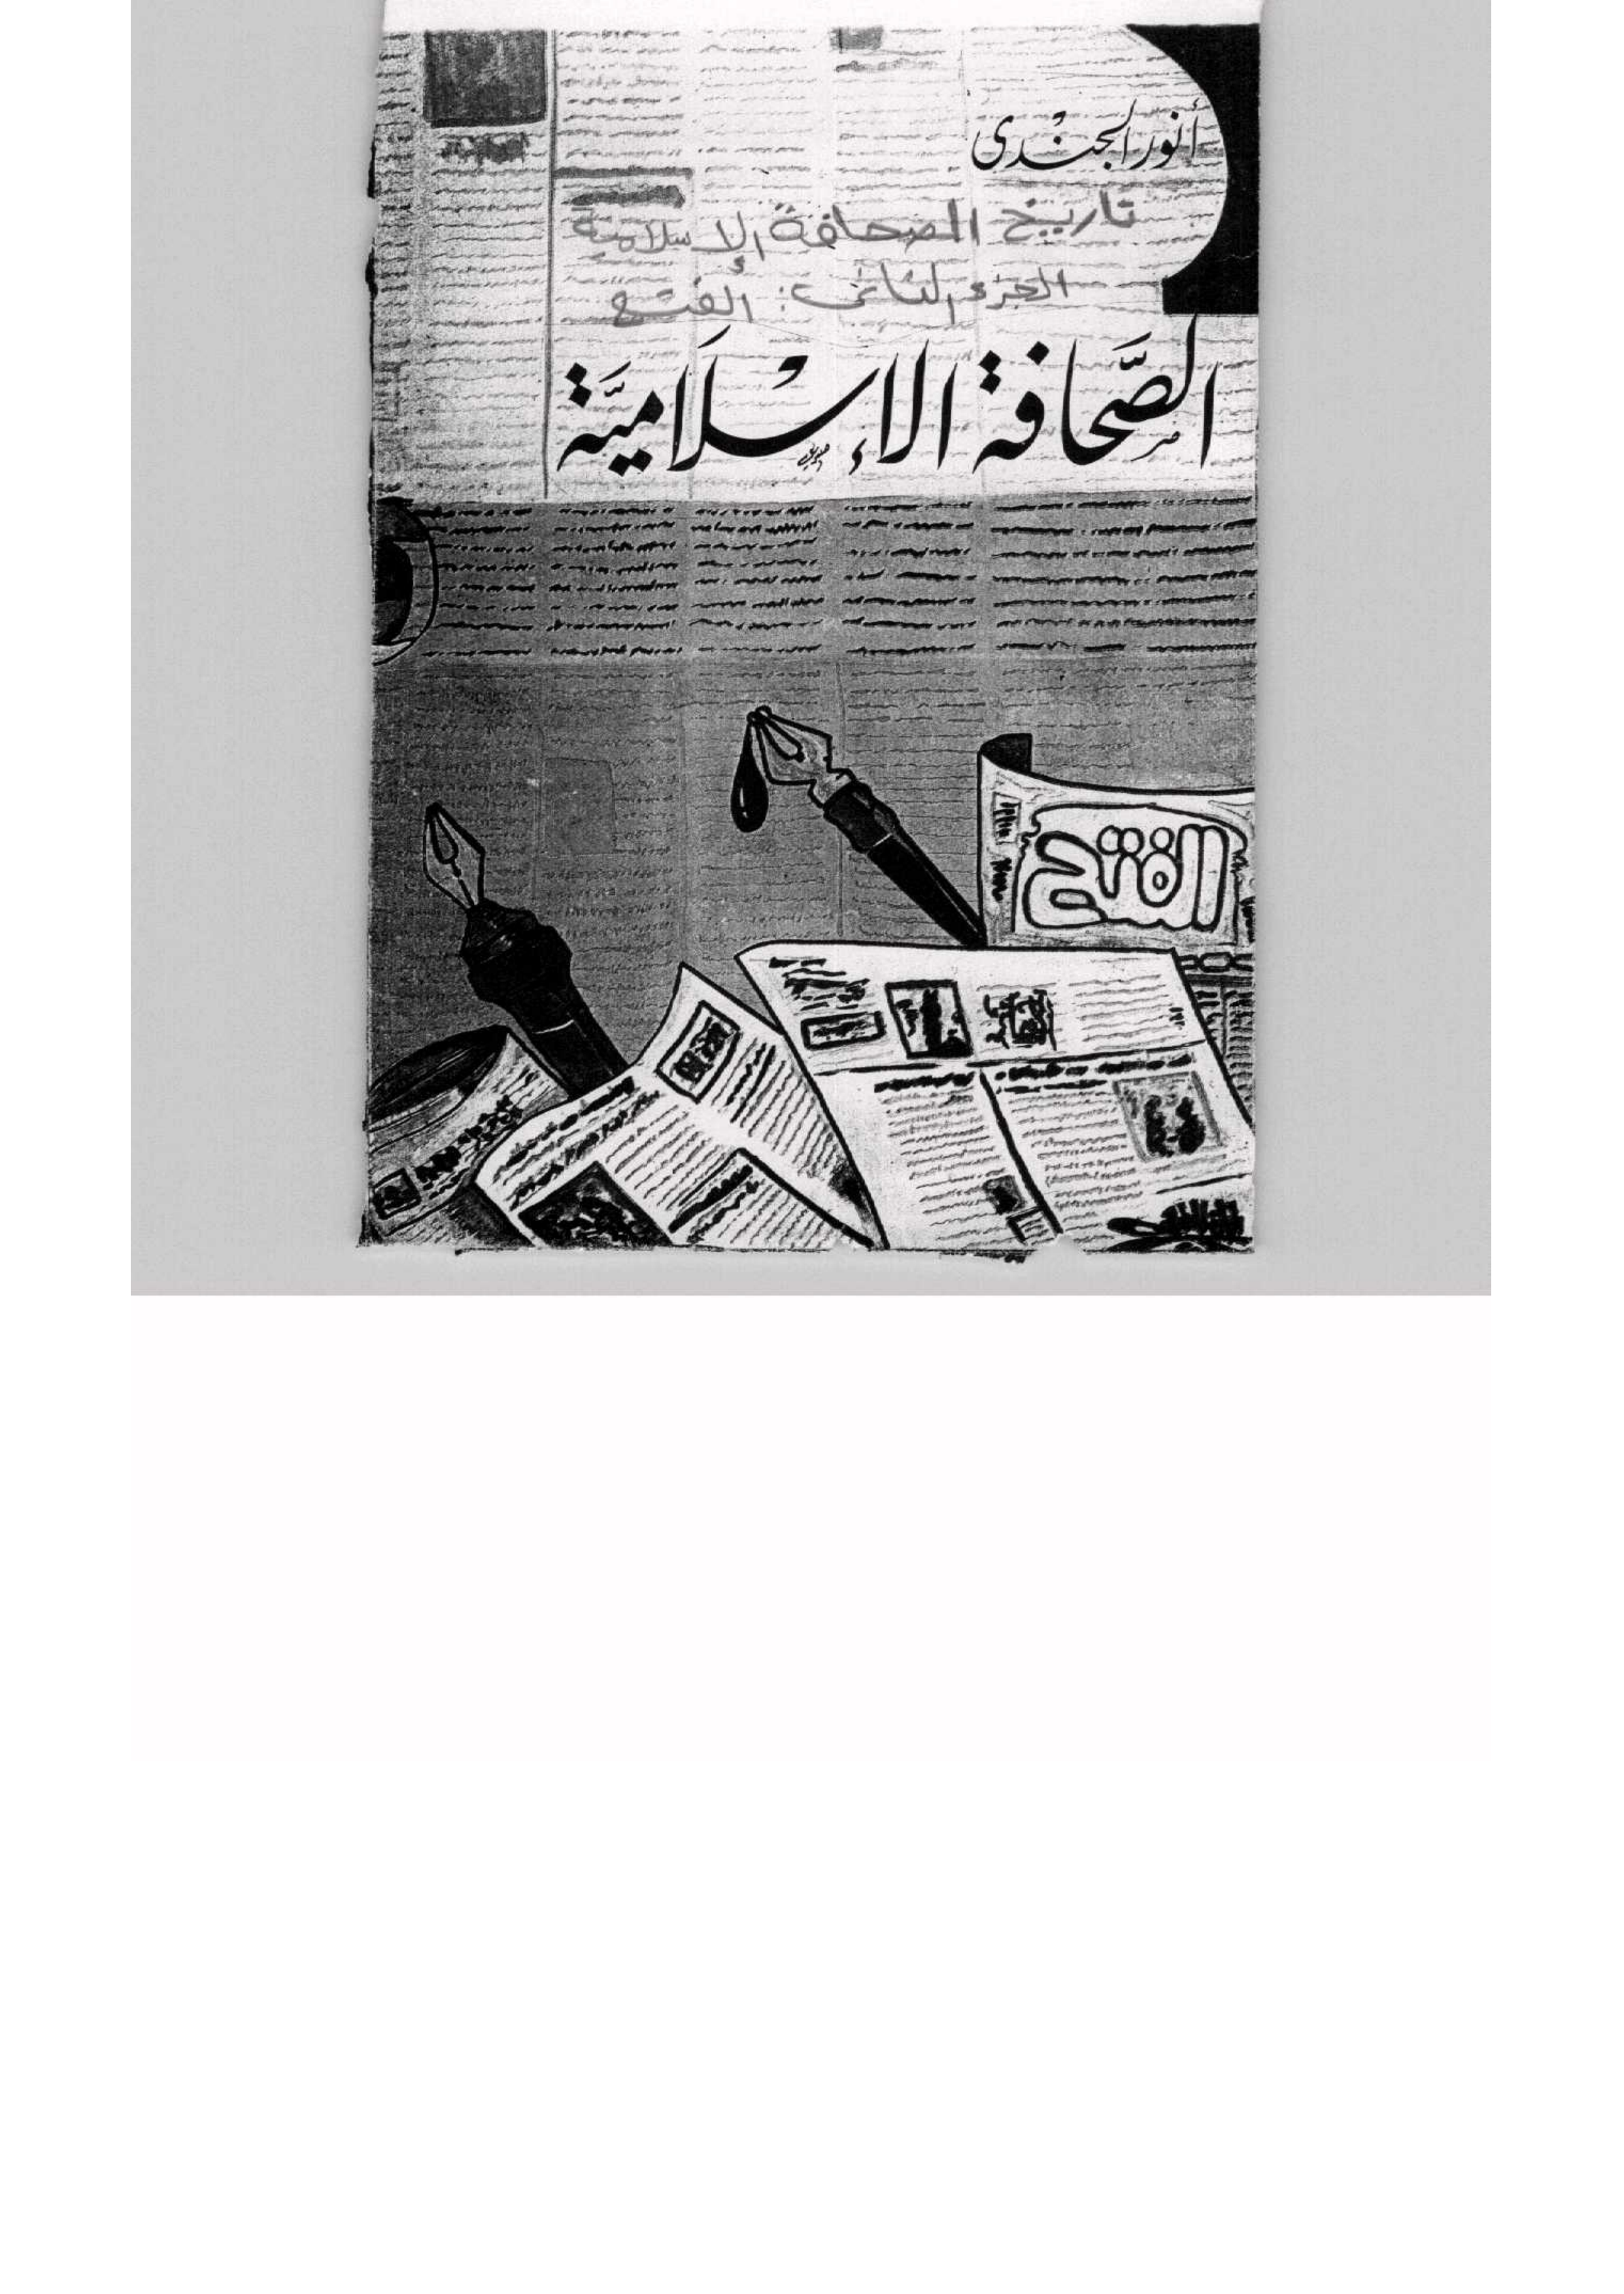 أنور الجندى
تاريخ الصحافة الإسلامية
الجزء الثانى: الفتح
الصَّحافة الإسْلَاميَّة
الفتح